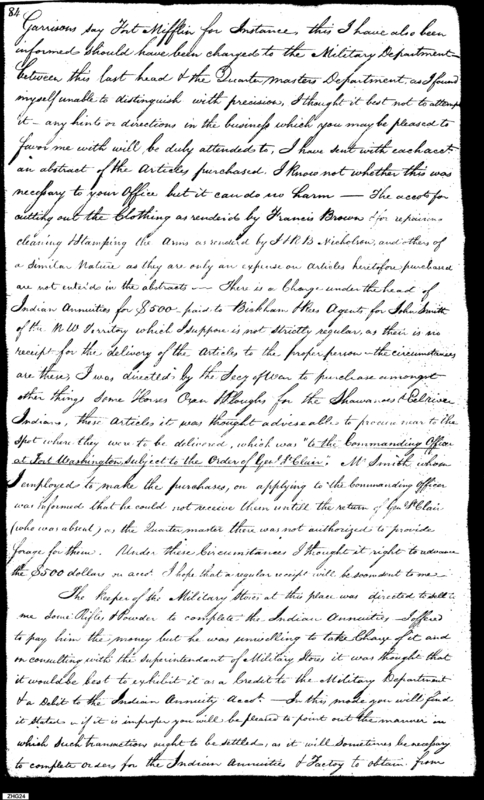 84
Garrisons say Fort Mifflin for Instance, this I have also been
informed should have been charged to the Military Department –
between this last head & the Quarter masters Department, as I found
myself unable to distinguish with precision, I thought it best not to attempt
it – any hint or directions in the business which you may be pleased to
favor me with will be duly attended to, I have sent with each acct.
an abstract of the Articles purchased. I know not whether this was
necessary to your Office but it can do no harm – The accot for
cutting out the Clothing as renderd by Francis Brown & for repairing
cleaning & Stamping the Arms as renderd by J & R B Nicholson, and others of
a similar Nature as they are only an expense on articles heretofore purchased
are not enterd in the abstracts – There is a Charge under the head of
Indian Annuities for $500 – paid to Agents for John Smith
of the N W Territory which I suppose is not strictly regular, as their is no
receipt for the delivery of the Articles to the proper person – the circumstances
are these, I was directed by the Secy of War to purchase amongst
other things Some Horses Oxen & Ploughs for the Shawanoes & Eelriver
Indians, these articles it was thought adviseable to procure near to the
Spot where they were to be deliverd, which was "to the Commanding Officer
at Fort Washington, subject to the Order of Genl. St Clair." Mr Smith whom
I employed to make the purchases, on applying to the Commanding Officer
was informed that he could not receive them untill the return of Genl St Clair
(who was absent) as the Quarter master there was not authorized to provide
forage for them. Under these Circumstances I thought it right to advance
the $500 dollars on accot. I hope that a regular receipt will be soon sent to me
The Keeper of the Military Stores at this place was directed to sell to
me Some Rifles & Powder to complete the Indian Annuities – I offered
to pay him the money but he was unwilling to take Charge of it and
on consulting with the Superintendant of Military Stores it was thought that
it would be best to exhibit it as a Credet to the Military Department
& a Debit to the Indian Annuity Acct. – In this mode you will find
it stated – if it is improper you will be pleased to point out the manner in
which such transactions ought to be settled, as it will sometimes be necessary
to complete orders for the Indian Annuities & Factory to obtain from
ZHG24